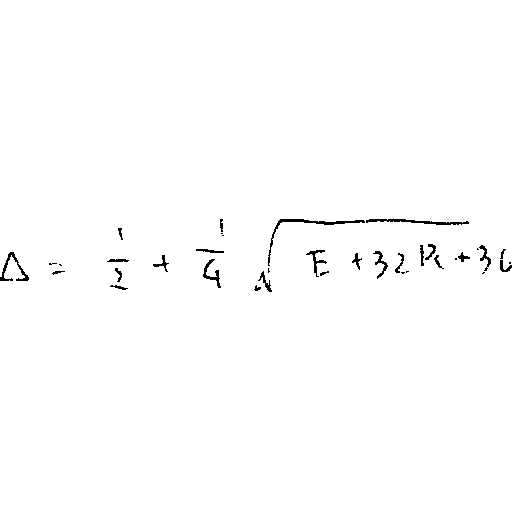 Δ = 1/2 + 1/4 √ E + 32 R + 36